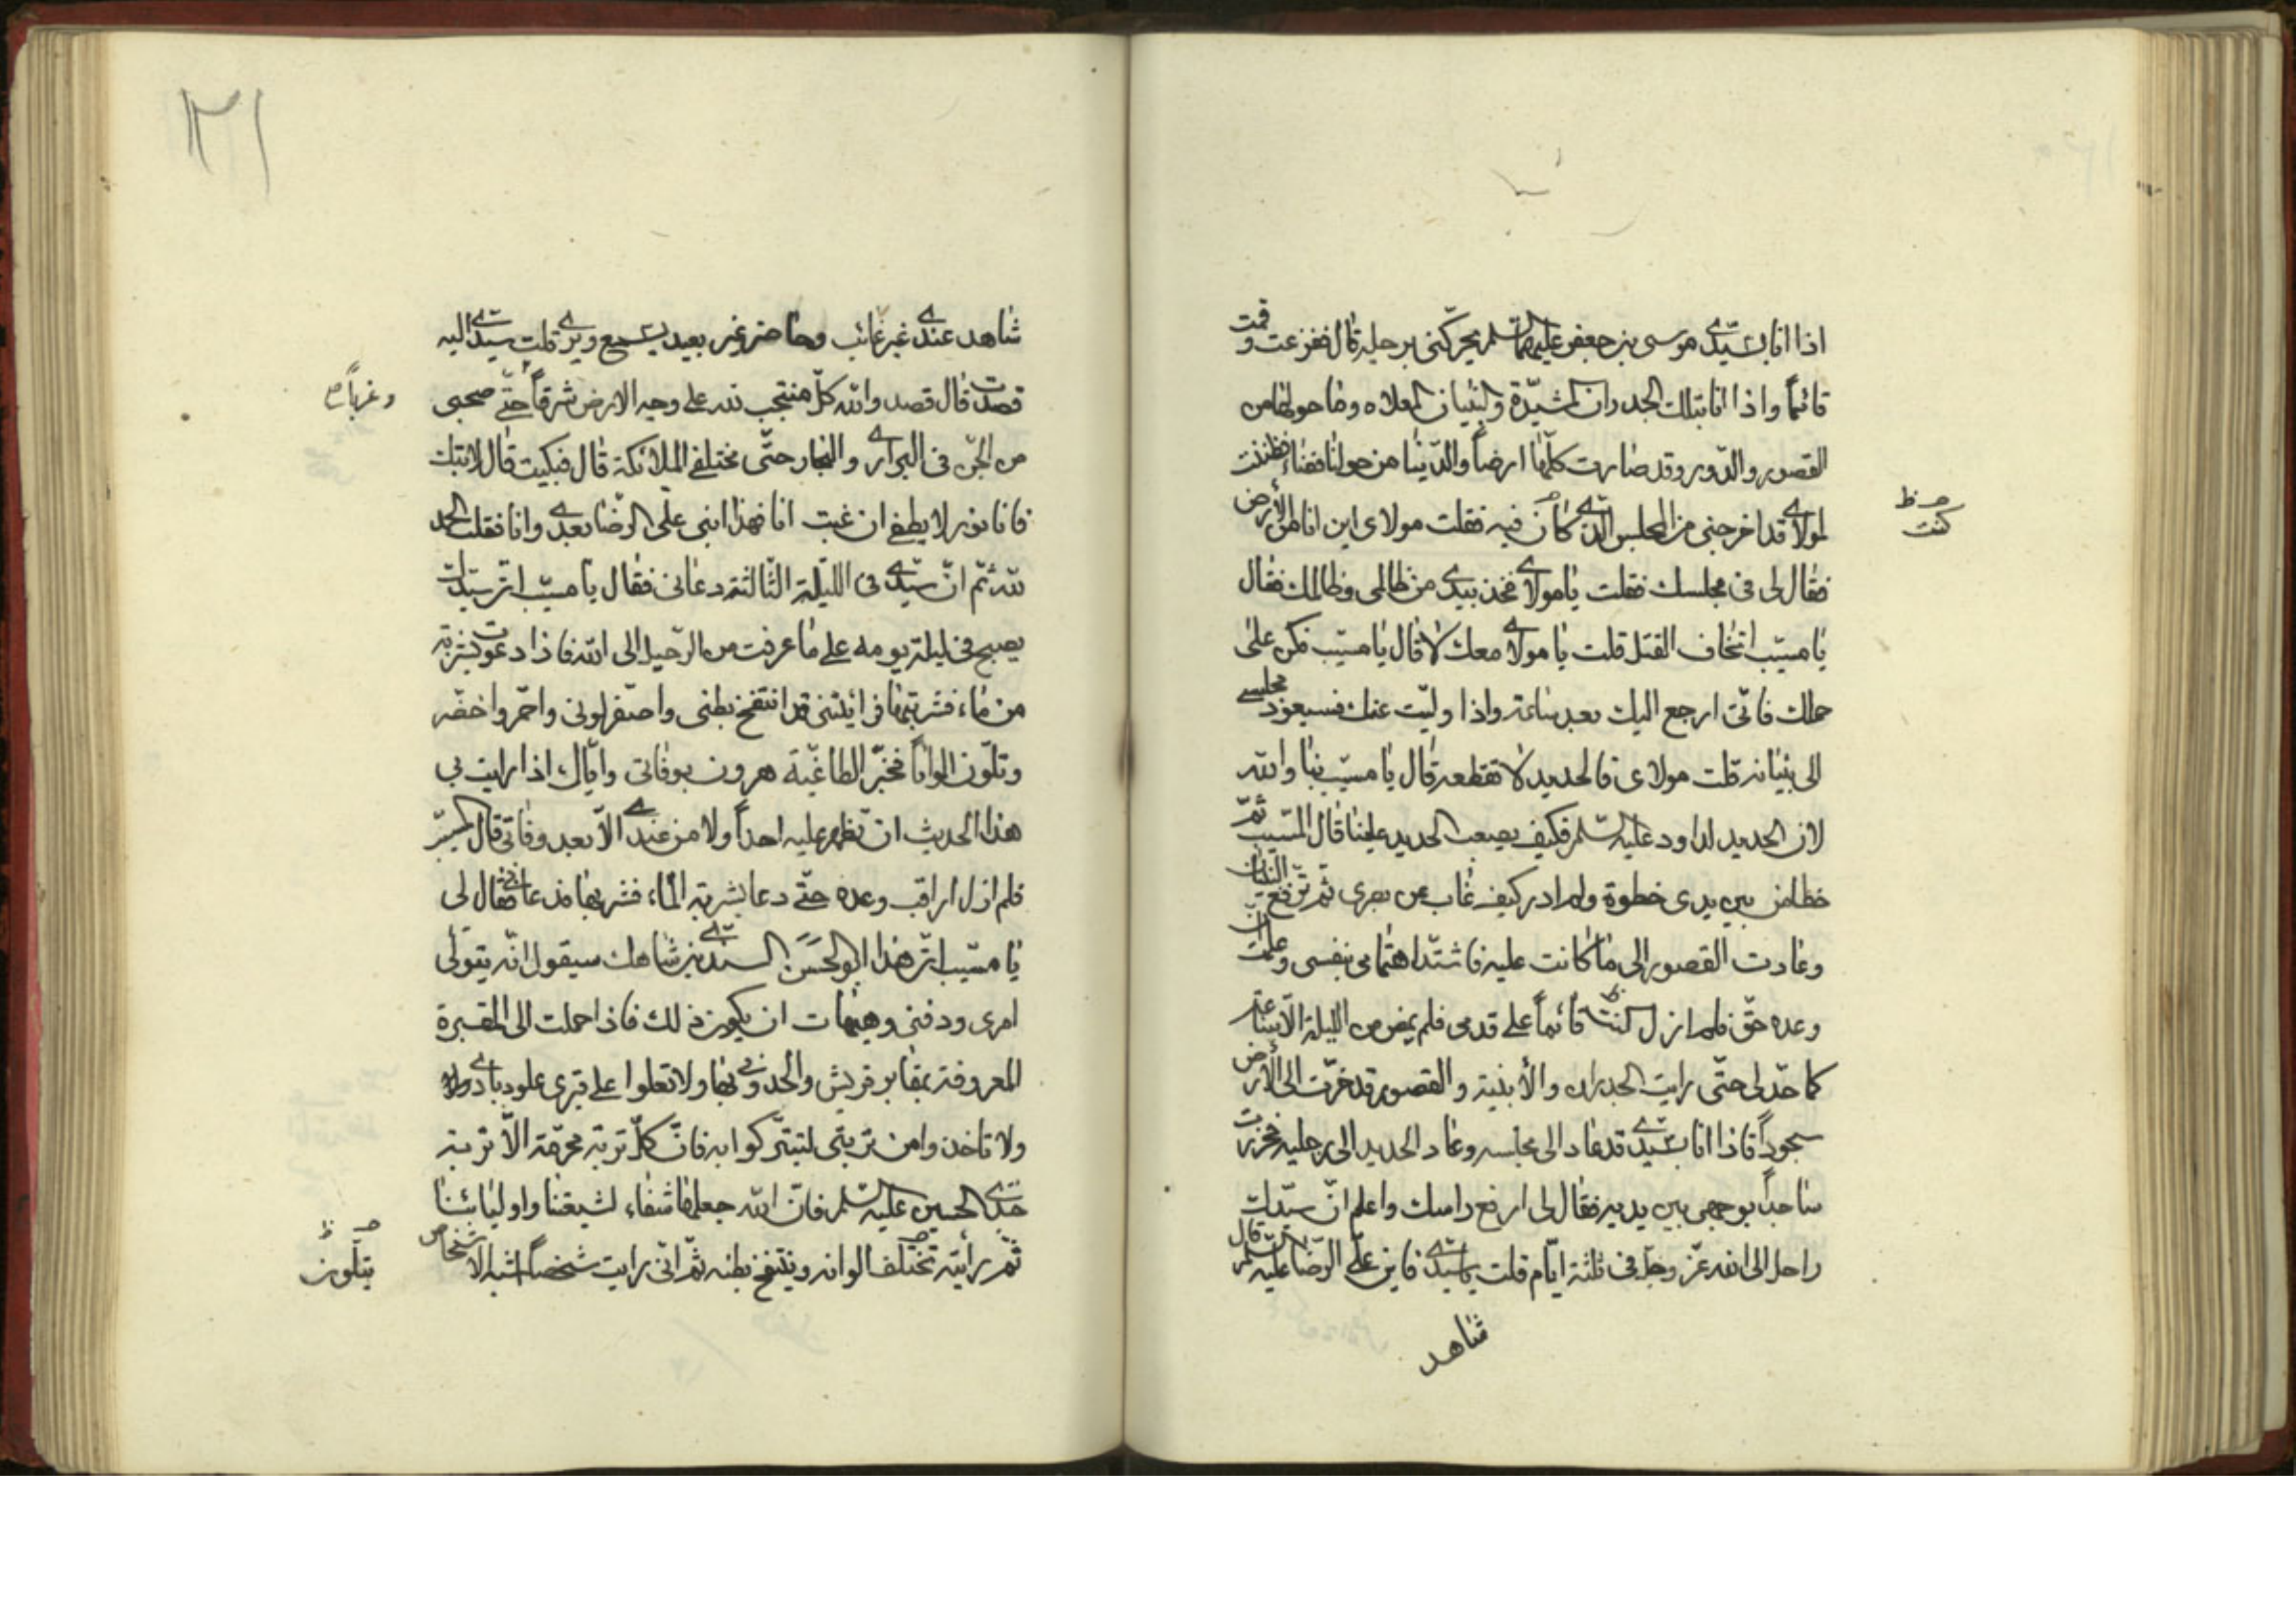 اذا انا بسيّدى موسى بن جعفر عليهما السّلم يحرّكنى برجليه قال ففزعت وقمت
قائماً واذا انا بتلك الجدران المشيّدة والبنيان المعلاه وما حولها من
القصور والدّور وقد صارت كلّها ارضاً والدّنيا من حولنا فضاء فظننت
لمولاى قد اخرجنى من المجلس الّذى كان فيه فقلت مولاى اين انا من الأرض
ص ظ
كنت
فقال لى فى مجلسك فقلت يا مولاى فخذ بيدى من ظالمى وظالمك فقال
يا مسيّب اتخاف القتل قلت يا مولاى معك لا قال يا مسيّب فكن على
حالك فانّى ارجع اليك بعد ساعة واذا ولّيت عنك فسيعود مجلسى
الى بنيانه قلت مولاى فالحديد لا تقطعه قال يا مسيّب بنا والله
لان الحديد لداود عليه السّلم فكيف يصعب الحديد علينا قال المسيّب ثمّ
خطا من بين يدى خطوة ولم ادر كيف غاب عن بصرى ثمّ ترفع البنيان
وعادت القصور الى ما كانت عليه فاشتدّ اهتمامى بنفسى وعلمت ان
وعده حقّ فلم ازل كنت قائماً على قدمى فلم يمض من الليلة الّا ساعة
كما حدّ لى حتّى رايت الجدران والأبنية والقصور قد خرّت الى الأرض
سجوداً فاذا انا بسيّدى قد عاد الى مجلسه وعاد الحديد الى رجليه فخررت
ساجداً بوجهى بين يديه فقال لى ارفع راسك واعلم انّ سيّدك
راحل الى الله عزّ وجلّ فى ثلثة ايّام قلت يا سيّدى فاين علىّ الرّضا عليه السّلم قال
شاهد
١٣١
شاهد عندى غير غائب وحاضر غير بعيد يسمع ويرى قلت سيّدى اليه
قصدت قال قصد والله كلّ منتجب لله على وجه الارض شرقاً حتّى محبّى
وغرباً ص
من الجنّ فى البرارى والبحار حتّى مختلفى الملائكة قال فبكيت قال لا تبك
فانا نور لا يطفى ان غبت انا فهذا ابنى على الرّضا بعدى وانا فقلت الحمد
لله ثمّ انّ سيّدى فى اللّيلة الثّالثة دعانى فقال يا مسيّب انّ سيّدك
يصبح فى ليلة يومه على ما عرفت من الرّحيل الى الله فاذا دعوت بشربة
من ماء فشربتها فرايتنى قد انتفخ بطنى واصفر لونى واحمّر واخضّر
وتلّون الواناً فخبّر الطاغية هرون بوفاتى وايّاك اذا رايت بى
هذا الحديث ان تظهر عليه احداً ولا من عندى الّا بعد وفاتى قال المسيّب
فلم ازل اراقب وعده حتّى دعا بشربة الماء فشربها فدعانى فقال لى
يا مسيّب انّ هذا ابو الحَسَن السندى بن شاهك سيقول انّه يتولّى
امرى ودفنى وهيهات ان يكون ذلك فاذا حملت الى المقبرة
المعروفة بمقابر قريش والحدونى بها ولا تعلوا على قبرى علو
ولا تاخذوا من تربتى لتتبّركوا به فانّ كلّ تربة محرّمة الّا تربة
جدّى الحسين عليه السّلم فانّ الله جعلها شفاء لشيعتنا واوليائنا
ثمّ رأيته تختلف الوانه وينتفخ بطنه ثمّ انّى رايت شخصاً اشبه الاشخاص
ص ظ
يتلّون